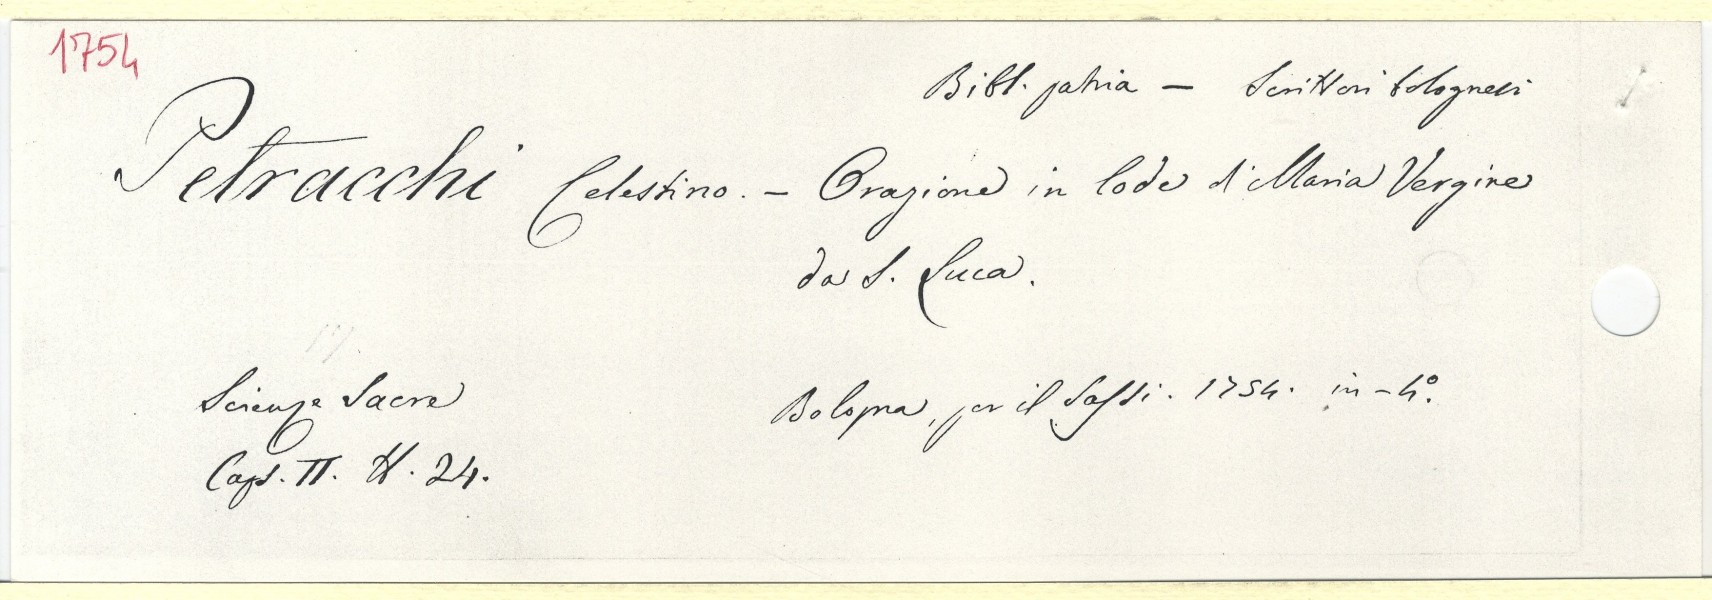 1754
Bibl. patria — Scrittori bolognesi
Petracchi Celestino. — Orazione in lode di Maria Vergine
da S. Luca.
Scienze Sacre
Bologna, per il Sassi. 1754. in-4º.
Caps. II. H. 24.